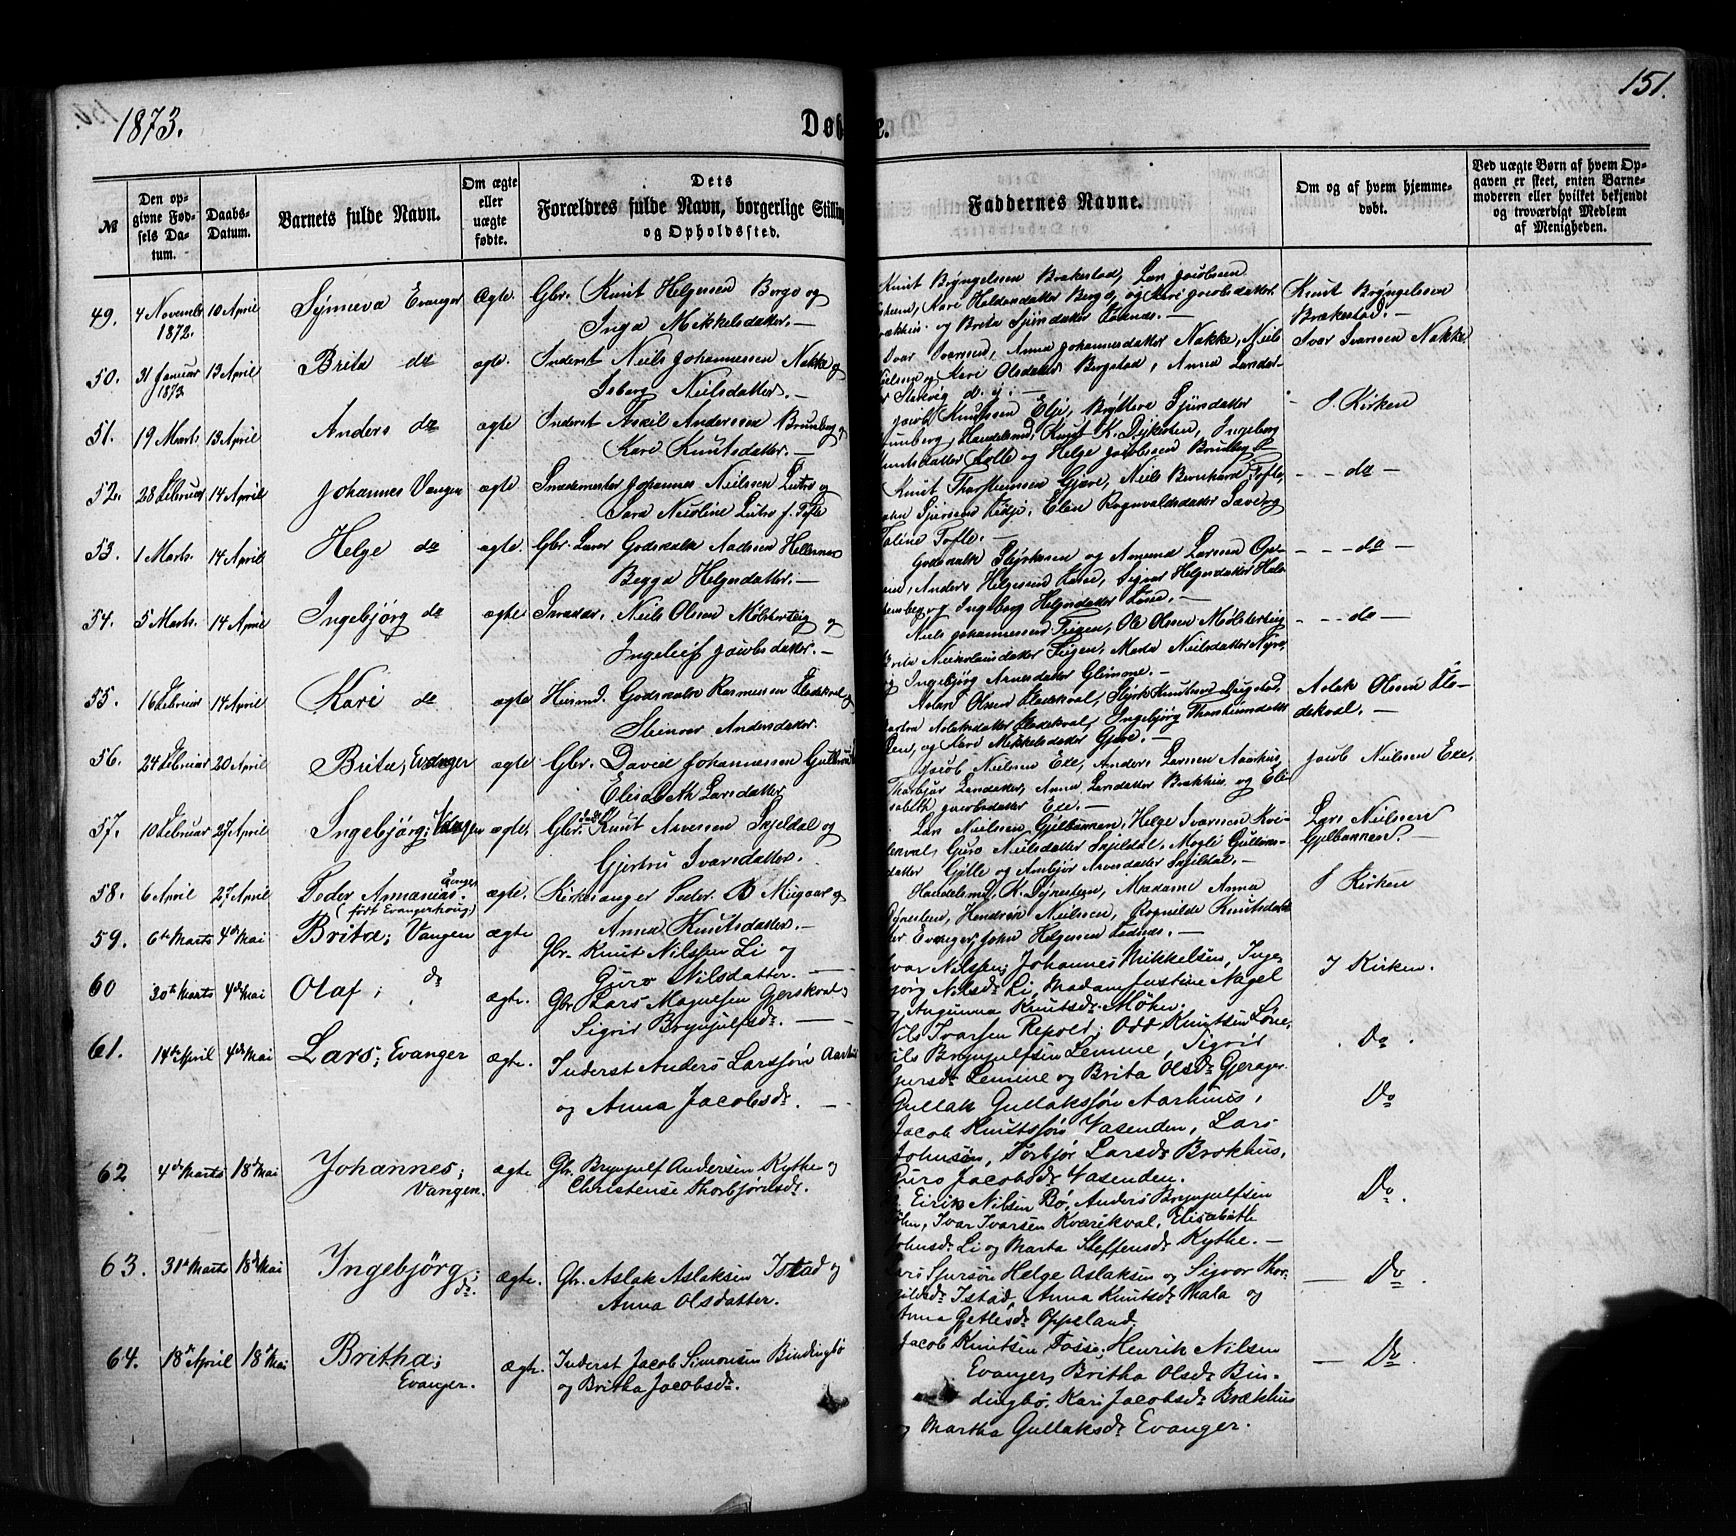 1873.
Døb
e.
151.
№
Den op-
givne Fød-
sels Da-
tum.
Daabs-
Datum.
Barnets fulde Navn.
Om ægte
eller
uægte
fødte.
Dets
Forældres fulde Navn, borgerlige Stilling
og Opholdssted.
Faddernes Navne.
Om og af hvem hjemme-
døbt.
Ved uægte Børn af hvem Op-
gaven er skeet, enten Barne-
moderen eller hvilket bekjendt
og troværdigt Medlem
af Menigheden.
49. 7 Novembr 10 April Synneva Evanger Ægte. Gbr. Knut Helgesen Borge og
1872. Inga Mikkelsdatter. —
Knut Brÿngelssen Brækestad, Lars Jacobsen
Kari Haldorsdatter Berge, og Kari Jacobsdatter
og Brita Sjursdatter
Knut Brÿngelssen
Brækestad. —
50. 31 Januar 13 April Brita do ægte. Inderst Neils Johannessen Nakke og
1873 Isberg Neilsdatter. —
Ivar Ivarssen, Anna Johannesdatter Nakke, Neils
og Kari Olsdatter Bergstad, Anna Larsdat-
Ivar Ivarssen Nakke
51. 19 Marts. 13 April Anders do ægte Inderst Andersen Brunborg og
Kari Knutsdatter. —
Jacob Knutssen Elje, Brÿtteve Sjursdatter
Handelsmd. Knut K. Dykesten, Ingeborg
Kolle og Helge Jacobssen Brunborg
I Kirken
52. 28 Februar 14 April Johannes Vangen ægte Snedkermester Johannes Neilssen Lutro og
Sara Nicoline Lutro f. Tofte
Knut Thorsteinssen Gjære, Neils Bernhard Tofte,
Elen Rognvaldsdatter
Taline Tofte. —
— — do —
53. 1 Marts. 14 April Helge do ægte. Gbr. Godskalk Aadssen Hellernes
Begga Helgesdatter. —
Godskalk Styrkssen og Amund Larssen
Anders Helgessen Lone, Signe Helgesdatter
Ingeborg Helgesdatter Lone. —
— — — do —
54. 5 Marts. 14 April Ingebjörg do ægte Neils Olsen Mølsterteig og
Ingeleif Jacobsdatter. —
Neils Johannessen Teigen, Ole Olssen Mølsterteig
Brita Nicolaisdatter Teigen, Marta Neilsdatter
og Ingebjörg Arnesdatter Glimme. —
— — — do —
55. 16 Februar 14 April Kari do ægte Husmd. Godskalk Rasmussen Flatekval og
Steinvor Andersdatter.
Aslak Olssen Flatekval, Styrk Knutssen
Aslaksdatter Flatekval, Ingebjörg Thorsteinsdatter
og Kari Mikkelsdatter Gjære. —
Aslak Olssen Fla-
dekval. —
56. 24 Februar 20 April Brita, Evanger ægte Gbr. David Johannessen
Elisabeth Larsdatter
Jacob Neilssen Exe, Anders Larssen Aarhus,
Thorbjør Larsdatter, Anna Larsdatter Brækhus og Eli-
sabeth Jacobsdatter Exe. —
Jacob Neilssen Exe,
57. 10 Februar 27 April Ingebjörg; Vangen ægte. Gbr. Knut Arvessen Skjeldal og
Gjertru Ivarsdatter.
Lars Neilssen Gjelbannen, Helge Ivarssen
Guro Neilsdatter Skjeldal, Magli
Gjelle og Ambjør Arvesdatter Skjeldal. —
Lars Neilssen
Gjelbannen. —
58. 6 April 27 April Peder Ammanias. Evanger ægte. Kirkesanger Peder B Miegaar og
(født Evangerhoug) Anna Knutsdatter. —
Handelsmd. K. Dÿvesten, Madame Anna
Dÿvesten, Hendrik Neilssen, Rognilde Knutsdat
ter Evanger, John Helgessen
I Kirken
59. 6te Marts 4de Mai Brita; Vangen ægte Gbr. Knut Nilssen Li og
Guro Nilsdatter. —
Ivar Nilssen, Johannes Mikkelsen, Inge-
bjørg Nilsdr Li, Madam Justine Nagel
Angunna Knutsdr Møhn.
I Kirken.
60 30te Marts 4de Mai Olaf; do ægte. Gbr Lars Magnesen Gjerskvol;
Sigrid Brynjulfsdr. —
Nils Ivarsen Repold; Odd Knutsen Løne,
Nils Brynjulfsen Lemme, Sigrid
Lemme og Brita Olsdr Gjerager
. Do .
61. 14de April 4de Mai Lars; Evanger ægte. Inderst Anders Larssøn Aarhus
og Anna Jacobsdr. —
Gullak Gullakssøn Aarhuus,
Jacob Knutssøn Vasenden, Lars
Johnsøn, Torbjør Larsdr Brækhus,
Guro Jacobsdr Vasenden.
Do
62 4de Marts 18de Mai Johannes; Vangen. ægte Gbr. Brynjulf Andersen Kythe og
Christense Thorbjørnsdr.
Eirik Nilsen Bø, Anders Brynjulfsen
Ivar Ivarsen Kvarekval, Elisabeth
Johnsdr Li og Marta Steffensdr Kythe. —
Do.
63. 31te Marts 18de Mai Ingebjörg; do. ægte. Gbr. Aslak Aslaksen Istad og
Anna Olsdatter.
Lars Sjursøn Helge Aslaksen og Sigvor Thor-
gildsdr Istad, Anna Knutsdr Mala og
Anna Getlesdr Oppeland,
— Do .
64. 18de April 18de Mai Britha; Evanger. ægte Inderst Jacob Simonsen Bindingbø
og Britha Jacobsdr.
Jacob Knutsen Fosse, Henrik Nilsen
Evanger, Britha Olsdr Bin-
dingbø, Kari Jacobsdr Brækhus
og Martha Gullaksdr Evanger.
— Do.